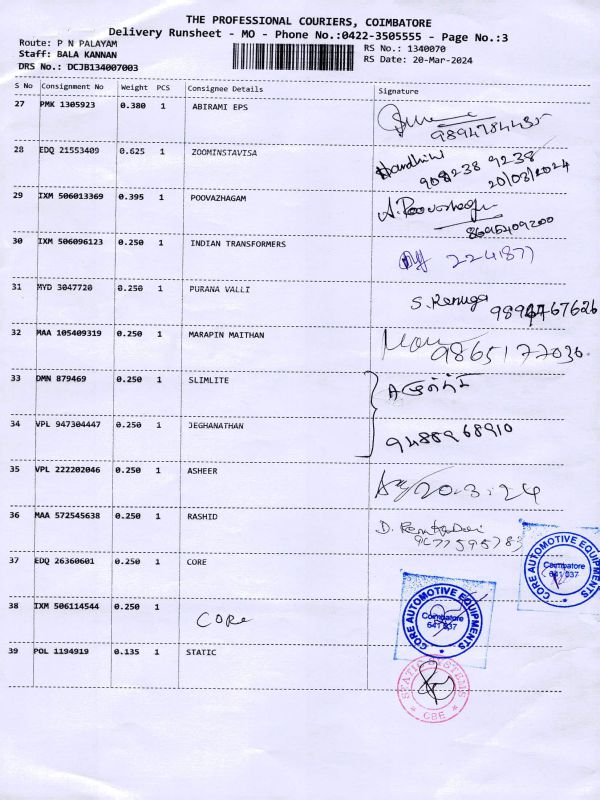 THE PROFESSIONAL COURIERS, COIMBATORE
Delivery Runsheet - MO - Phone No.:0422-3505555 - Page No.:3
Route: P N PALAYAM
Staff: BALA KANNAN
DRS No.: DCJB134007003
RS No.: 1340070
RS Date: 20-Mar-2024
S No Consignment No Weight PCS Consignee Details Signature
27 PMK 1305923 0.380 1 ABIRAMI EPS
28 EDQ 21553409 0.625 1 ZOOMINSTAVISA
908238 9238
20/03/2024
29 IXM 506013369 0.395 1 POOVAZHAGAM
A. Poovazhagu
8695409200
30 IXM 506096123 0.250 1 INDIAN TRANSFORMERS
2241877
31 MYD 3047720 0.250 1 PURANA VALLI
S. Renuga
32 MAA 105409319 0.250 1 MARAPIN MAITHAN
9865177036.
33 DMN 879469 0.250 1 SLIMLITE
34 VPL 947304447 0.250 1 JEGHANATHAN
9488968910
35 VPL 222202046 0.250 1 ASHEER
20.3.24
36 MAA 572545638 0.250 1 RASHID
37 EDQ 26360601 0.250 1 CORE
CORE AUTOMOTIVE EQUIPMENTS
Coimbatore
641 037
38 IXM 506114544 0.250 1 CORe
CORE AUTOMOTIVE EQUIPMENTS
Coimbatore
641 037
39 POL 1194919 0.135 1 STATIC
STATIC SYSTEMS
CBE